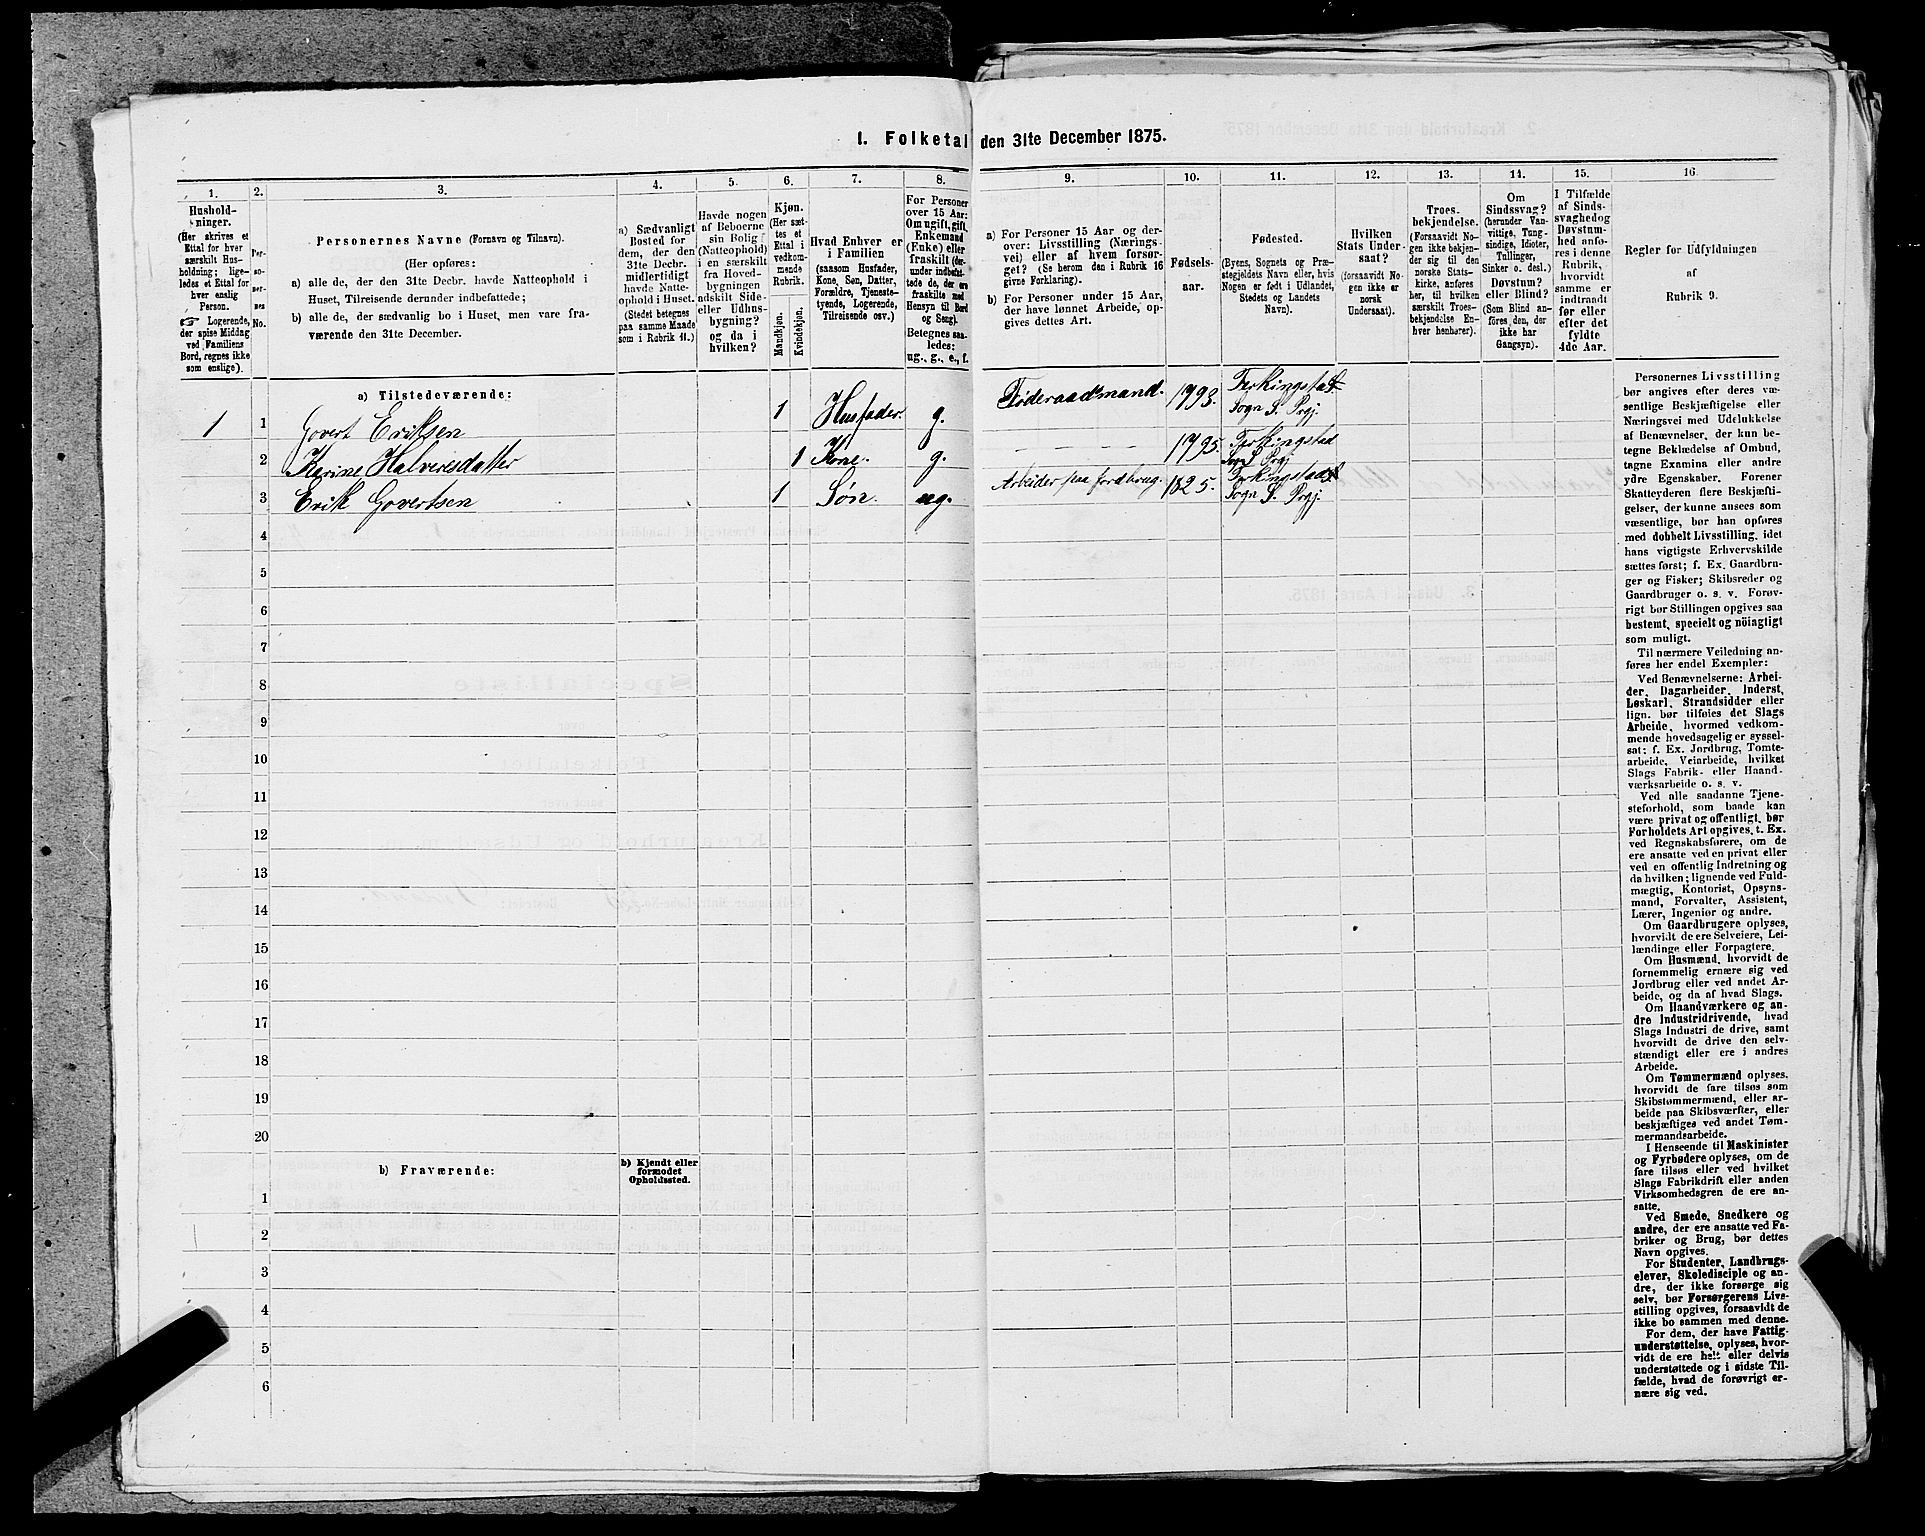 1. Folketal den 31te December 1875.
1.
Hushold-
ninger.
(Her skrives et
Ettal for hver
særskilt Hus-
holdning; lige-
ledes et Ettal for
hver enslig
Person.
☞ Logerende,
der spise Middag
ved Familiens
Bord, regnes ikke
som enslige).
2.
Per-
so-
ner-
nes
No.
3.
Personernes Navne (Fornavn og Tilnavn).
(Her opføres:
a) alle de, der den 31te Decbr. havde Natteophold i
Huset, Tilreisende derunder indbefattede;
b) alle de, der sædvanlig bo i Huset, men vare fra-
værende den 31te December.
4.
a) Sædvanligt
Bosted for
dem, der den
31te Decbr.
midlertidigt
havde Natte-
ophold i Huset.
(Stedet betegnes
paa samme Maade
som i Rubrik 11.)
5.
Havde nogen
af Beboerne
sin Bolig
(Natteophold)
i en særskilt
fra Hoved-
bygningen
adskilt Side-
eller Udhus-
bygning?
og da i
hvilken?
6.
Kjøn.
(Her sæt-
tes et
Ettal i
vedkom-
mende
Rubrik.
Mandkjøn.
Kvindekjøn.
7.
Hvad Enhver er
i Familien
(saasom Husfader,
Kone, Søn, Datter,
Forældre, Tjeneste-
tyende, Logerende,
Tilreisende osv.)
8.
For Personer
over 15 Aar:
Om ugift, gift,
Enkemand
(Enke) eller
fraskilt (der-
under indbefat-
tede de, der ere
fraskilte med
Hensyn til Bord
og Seng).
Betegnes saa-
ledes:
ug., g., e., f.
9.
a) For Personer 15 Aar og der-
over: Livsstilling (Nærings-
vei) eller af hvem forsør-
get? (Se herom den i Rubrik 16
givne Forklaring).
b) For Personer under 15 Aar,
der have lønnet Arbeide, op-
gives dettes Art.
10.
Fødsels-
aar.
11.
Fødested.
(Byens, Sognets og Præ-
stegjeldets Navn eller, hvis
Nogen er født i Udlandet,
Stedets og Landets
Navn).
12.
Hvilken
Stats Under-
saat?
(forsaavidt No-
gen ikke er
norsk
Undersaat).
13.
Troes-
bekjendelse.
(Forsaavidt No-
gen ikke bekjen-
der sig til den
norske Stats-
kirke, anføres
her, til hvilken
særskilt Troes-
bekjendelse En-
hver henhører).
14.
Om
Sindssvag?
(herunder Van-
vittige, Tung-
sindige, Idioter,
Tullinger,
Sinker o. desl.)
Døvstum?
eller Blind?
(Som Blind an-
føres den, der
ikke har
Gangsyn).
15.
I Tilfælde
af Sinds-
svaghed og
Døvstum-
hed anfø-
res i denne
Rubrik,
hvorvidt
samme er
indtraadt
før eller
efter det
fyldte
4de Aar.
16.
Regler for Udfyldningen
af
Rubrik 9.
a) Tilstedeværende:
1 1 Govert Eriksen 1 Husfader. g. Føderaadmand. 1793. Torkingstad Sogn S. Prgj.
2 Karine Halversdatter 1 Kone. g. 1795. Torkingstad Sogn S Prgj
3 Erik Govertsen 1 Søn. ug. Arbeider paa Jordbrug. 1825. Torkingstad Sogn S. Prgj.
4
5
6
7
8
9
10
11
12
13
14
15
16
17
18
19
20
b) Fraværende:
b) Kjendt eller
formodet
Opholdssted.
1
2
3
4
5
6
Personernes Livsstilling
bør angives efter deres væ-
sentlige Beskjæftigelse eller
Næringsvei med Udelukkelse
af Benævnelser, der kun be-
tegne Beklædelse af Ombud,
tagne Examina eller andre
ydre Egenskaber. Forener
Skatteyderen flere Beskjæfti-
gelser, der kunne ansees som
væsentlige, bør han opføres
med dobbelt Livsstilling, idet
hans vigtigste Erhvervskilde
sættes først; f. Ex. Gaardbru-
ger og Fisker; Skibsreder og
Gaardbruger o. s. v. Forøv-
rigt bør Stillingen opgives saa
bestemt, specielt og nöiagtigt
som muligt.
Til nærmere Veiledning an-
føres her endel Exempler:
Ved Benævnelserne: Arbei-
der, Dagarbeider, Inderst,
Løskarl, Strandsidder eller
lign. bør tilføies det Slags
Arbeide, hvormed vedkom-
mende hovedsagelig er syssel-
sat; f. Ex. Jordbrug, Tomte-
arbeide, Veiarbeide, hvilket
Slags Fabrik- eller Haand-
værksarbeide o. s. v.
Ved alle saadanne Tjene-
steforhold, som baade kan
være privat og offentligt, bør
Forholdets Art opgives, t. Ex.
ved Regnskabsførere, om de
ere ansatte ved en privat eller
ved en offentlig Indretning og
da hvilken; lignende ved Fuld-
mægtig, Kontorist, Opsyns-
mand, Forvalter, Assistent,
Lærer, Ingeniør og andre.
Om Gaardbrugere oplyses,
hvorvidt de ere Selveiere, Lei-
lændinge eller Forpagtere.
Om Husmænd, hvorvidt de
fornemmelig ernære sig ved
Jordbrug eller ved andet Ar-
beide, og da af hvad Slags.
Om Haandværkere og an-
dre Industridrivende, hvad
Slags Industri de drive, samt
hvorvidt de drive den selv-
stændigt eller ere i andres
Arbeide.
Om Tømmermænd oplyses,
hvorvidt de fare tilsøs som
Skibstømmermænd, eller ar-
beide paa Skibsværfter, eller
beskjæftiges ved andet Tøm-
mermandsarbeide.
I Henseende til Maskinister
og Fyrbødere oplyses, om de
fare tilsøs eller ved hvilket
Slags Fabrikdrift eller anden
Virksomhedsgren de ere an-
satte.
Ved Smede, Snedkere og
andre, der ere ansatte ved Fa-
briker og Brug, bør dettes
Navn opgives.
For Studenter, Landbrugs-
elever, Skoledisciple og an-
dre, der ikke forsørge sig
selv, bør Forsørgerens Livs-
stilling opgives, forsaavidt de
ikke bo sammen med denne.
For dem, der have Fattig-
understøttelse, oplyses, hvor-
vidt de ere helt eller delvis
understøttede og i sidste Til-
fælde, hvad de forøvrigt er-
nære sig ved.